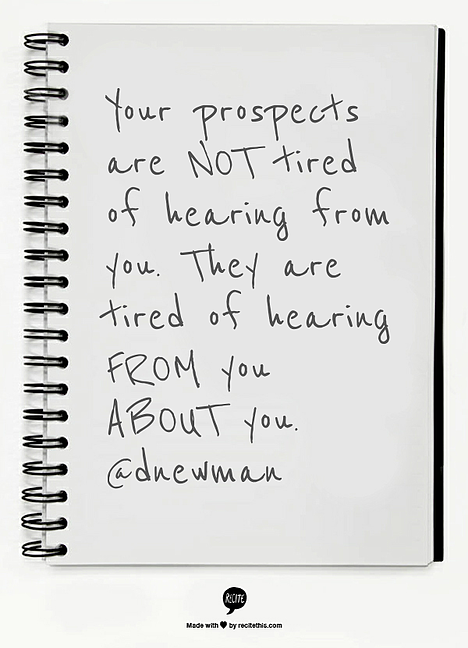 Your prospects
are NOT tired
of hearing from
you. They are
tired of hearing
FROM you
ABOUT you.
@dnewman
RECITE
Made with ♥ by recitethis.com